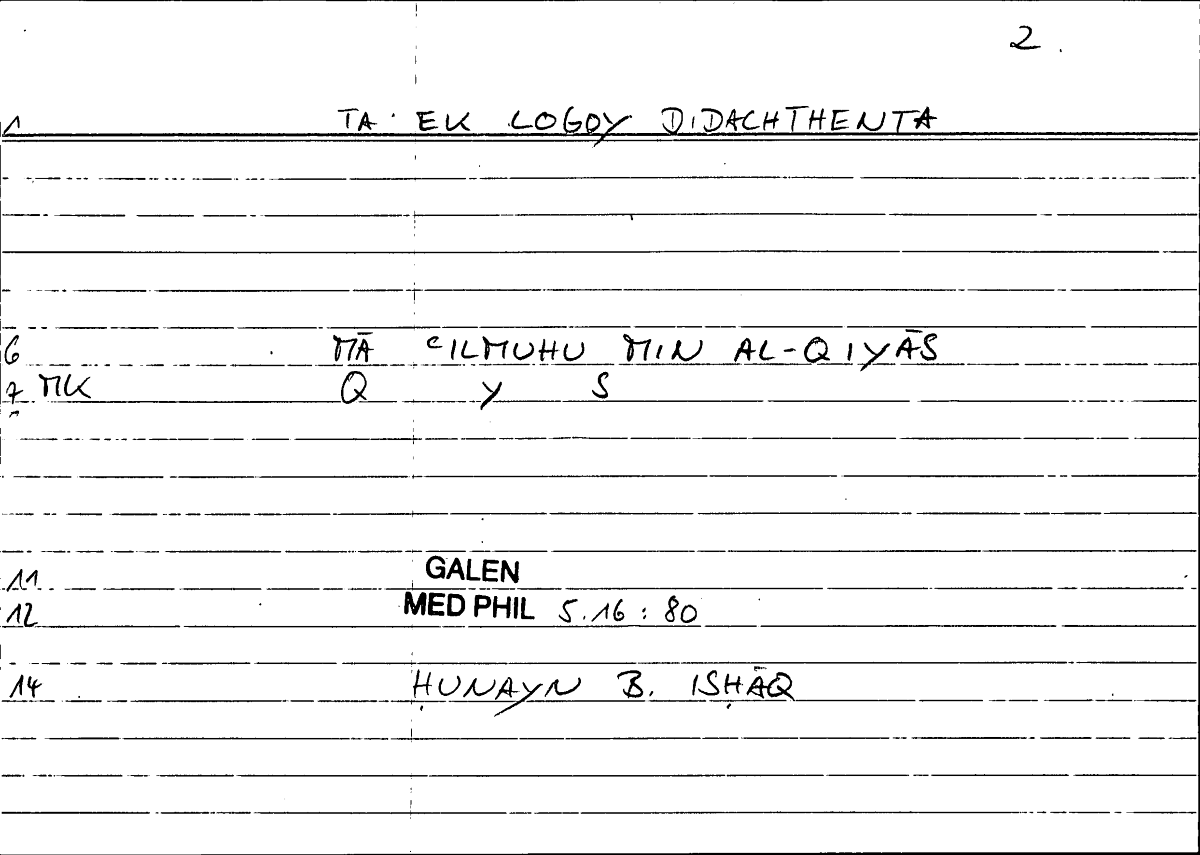 2.
1 TA EK LOGOY DIDACHTHENTA
6 MĀ ʿILMUHU MIN AL-QIYĀS
7 MK Q Y S
11 GALEN
12 MED PHIL 5.16 : 80
14 ḤUNAYN B. ISḤĀQ